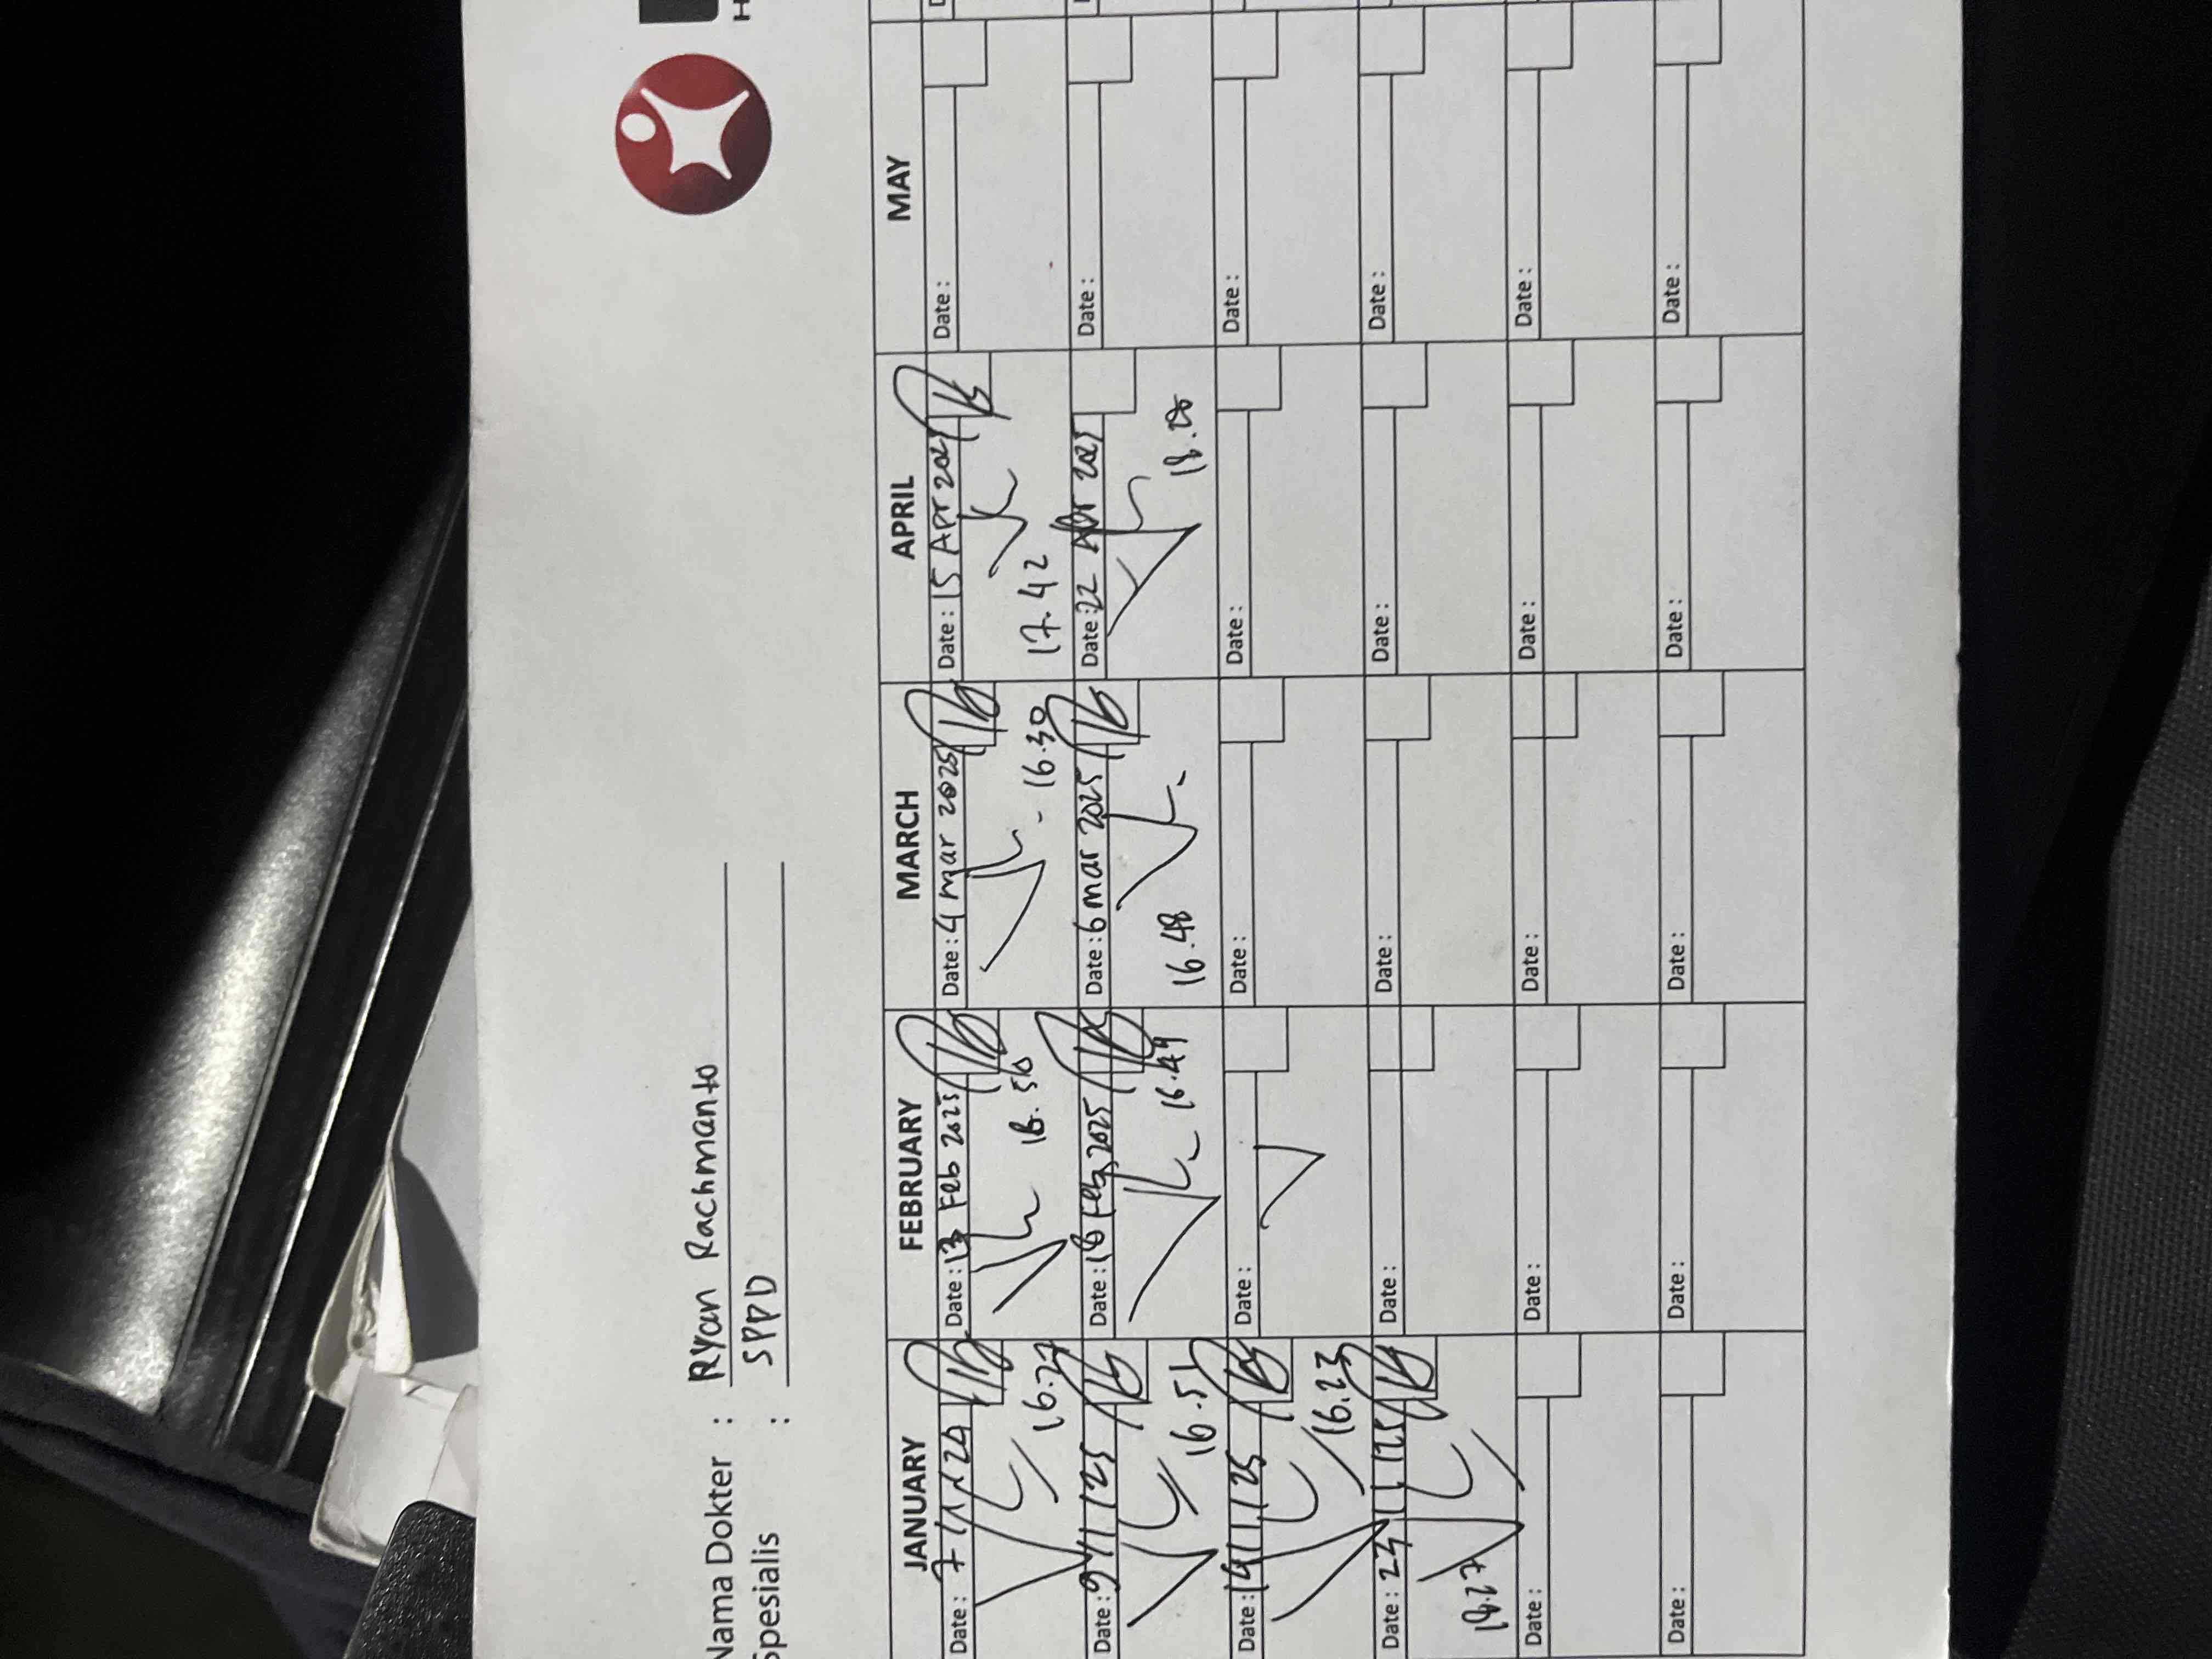 Nama Dokter : Ryan Rachmanto
Spesialis : SPPD
JANUARY FEBRUARY MARCH APRIL MAY
Date : 7 Date : 13 Feb 2025 Date : 4 mar 2025 Date : 15 Apr 202 Date :
16.27 16.30 17.42
Date : 9/1/25 Date : 18 Feb 2025 Date : 6 mar 2025 Date : 22 Apr 202 Date :
16.51 16.49 16.48 18.
Date : 14/1/25 Date : Date : Date : Date :
16.23
Date : 23/1/25 Date : Date : Date : Date :
18.27
Date : Date : Date : Date : Date :
Date : Date : Date : Date : Date :